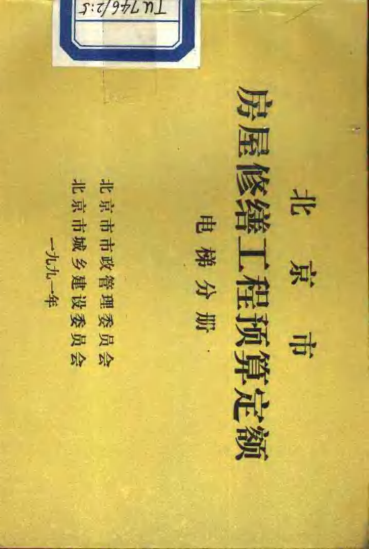 TU746/2:5
北京市
房屋修缮工程预算定额
电梯分册
北京市市政管理委员会
北京市城乡建设委员会
一九九一年